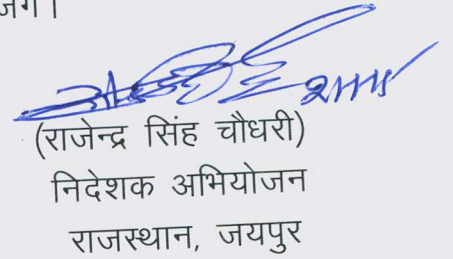 (राजेन्द्र सिंह चौधरी)
निदेशक अभियोजन
राजस्थान, जयपुर